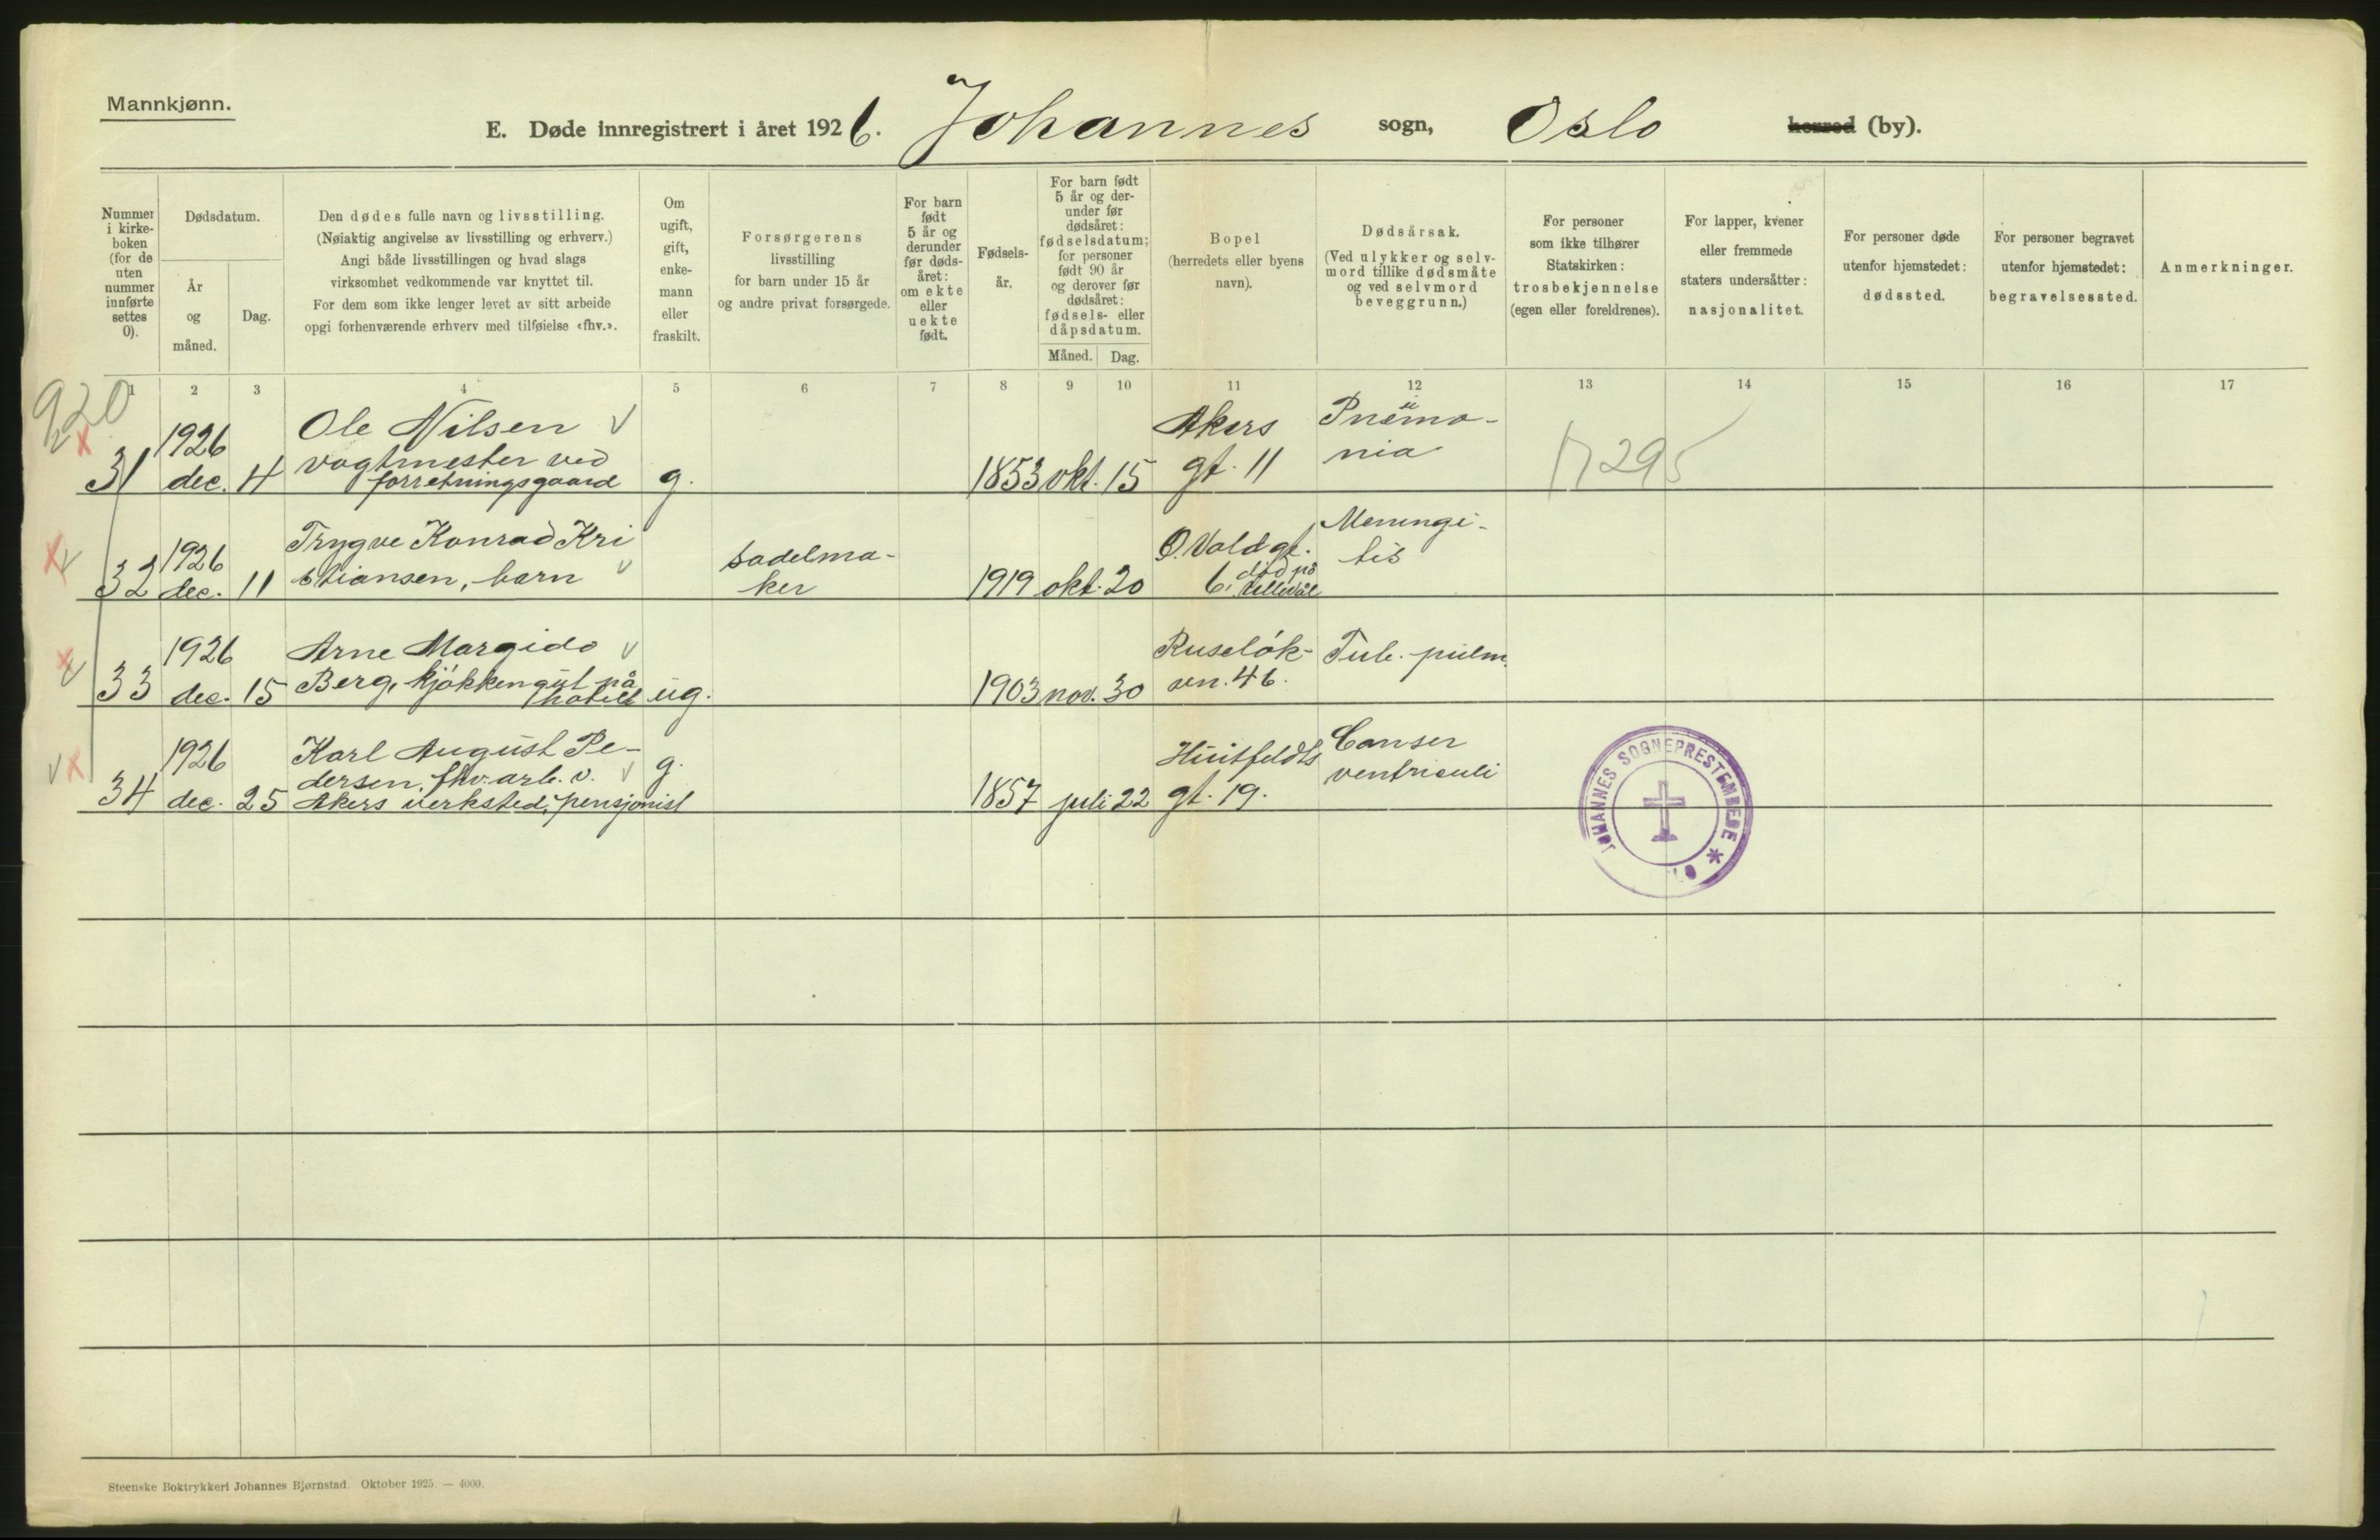 Mannkjønn.
E. Døde innregistrert i året 1926. Johannes sogn, Oslo herred (by).
Nummer
i kirke-
boken
(for de
uten
nummer
innførte
settes
0).
Dødsdatum.
År
og
måned.
Dag.
Den dødes fulle navn og livsstilling.
(Nøiaktig angivelse av livsstilling og erhverv.)
Angi både livsstillingen og hvad slags
virksomhet vedkommende var knyttet til.
For dem som ikke lenger levet av sitt arbeide
opgi forhenværende erhverv med tilføielse «fhv.».
Om
ugift,
gift,
enke-
mann
eller
fraskilt.
Forsørgerens
livsstilling
for barn under 15 år
og andre privat forsørgede.
For barn
født
5 år og
derunder
før døds-
året:
om ekte
eller
uekte
født.
Fødsels-
år.
For barn født
5 år og der-
under før
dødsåret:
fødselsdatum;
for personer
født 90 år
og derover før
dødsåret:
fødsels- eller
dåpsdatum.
Måned. Dag.
Bopel
(herredets eller byens
navn).
Dødsårsak.
(Ved ulykker og selv-
mord tillike dødsmåte
og ved selvmord
beveggrunn.)
For personer
som ikke tilhører
Statskirken:
trosbekjennelse
(egen eller foreldrenes).
For lapper, kvener
eller fremmede
staters undersåtter:
nasjonalitet.
For personer døde
utenfor hjemstedet:
dødssted.
For personer begravet
utenfor hjemstedet:
begravelsessted.
Anmerkninger.
1 2 3 4 5 6 7 8 9 10 11 12 13 14 15 16 17
920
1926 Ole Nilsen Akers Pneümo-
vagtmester ved nia
31 dec. 4 forretningsgaard g. 1853 okt. 15 gt. 11 17295
1926 Trygve Konrad Kri sadelma- O. Vold gt. Meningi-
32 dec. 11 stiansen, barn ker 1919 okt. 20 6, død på tis
Ullevål
1926 Arne Margido Ruseløk- Tub. pulm.
33 dec. 15 Berg, kjøkkengut på ug. 1903 nov. 30 vn. 46.
hotell
1926 Karl August Pe- g. Huitfeldts Canser
dersen, fhv. arb. v. ventriculi
34 dec. 25 Akers verksted, pensjonist 1857 juli 22 gt. 19.
JOHANNES SOGNEPRESTEMBEDE *
Steenske Boktrykkeri Johannes Bjørnstad. Oktober 1925. — 4000.